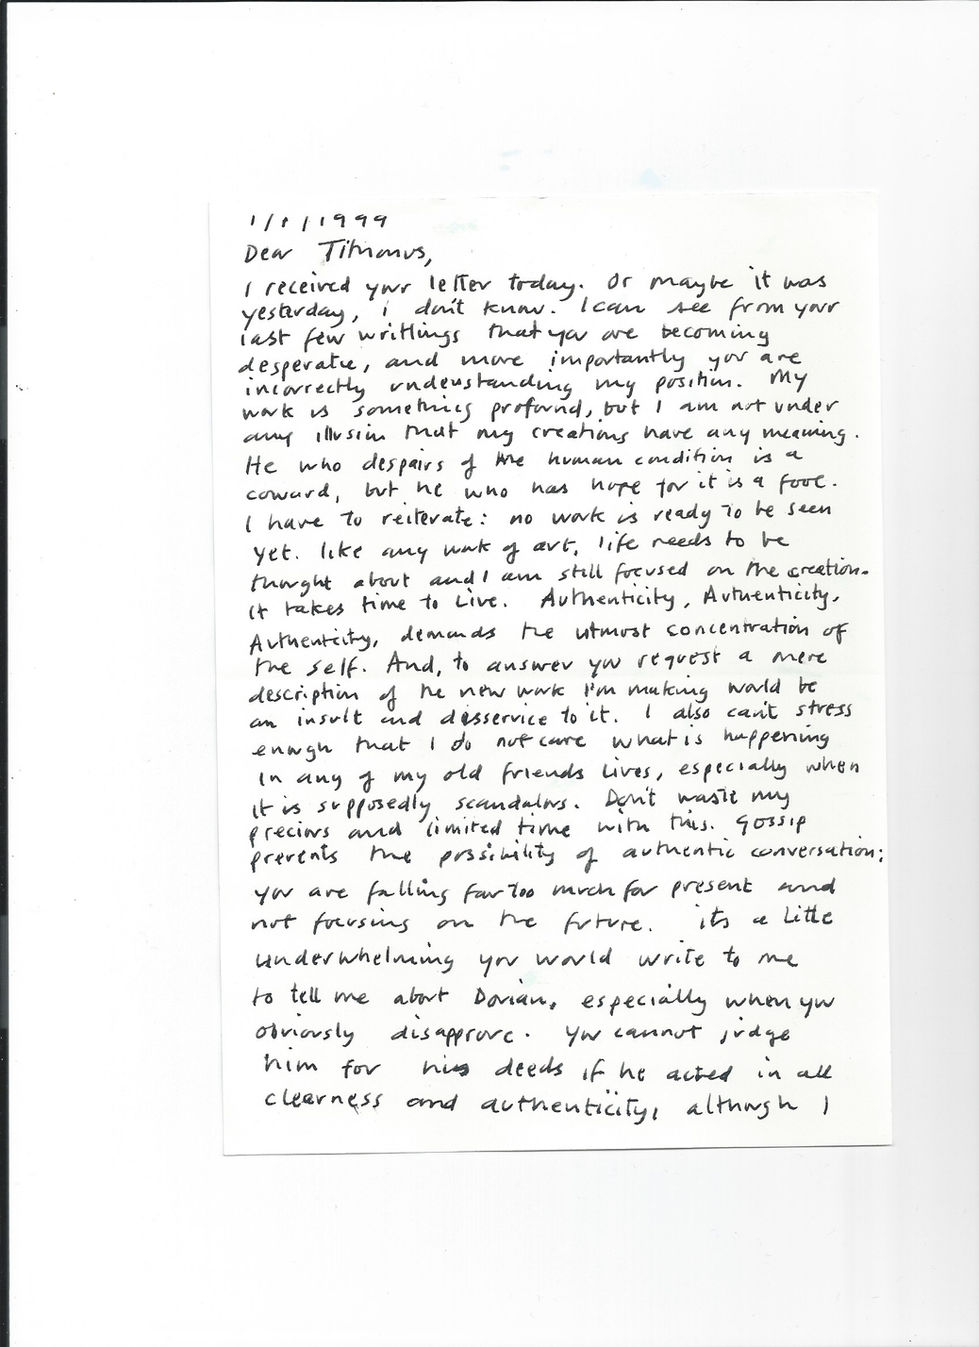 1/1/1999
Dear Tithonus,
I received your letter today. Or maybe it was
yesterday, i don't know. I can see from your
last few writlings that you are becoming
desperatie, and more importantly you are
incorrectly understanding my position. My
work is something profound, but I am not under
any illusion that my creations have any meaning.
He who despairs of the human condition is a
coward, but he who has hope for it is a fool.
I have to reiterate: no work is ready to be seen
yet. like any work of art, life needs to be
thought about and I am still focused on the creation.
it takes time to live. Authenticity, Authenticity,
Authenticity, demands the utmost concentration of
the self. And, to answer you request a mere
description of the new work I'm making would be
an insult and disservice to it. I also can't stress
enough that I do not care what is happening
in any of my old friends lives, especially when
it is supposedly scandalous. Don't waste my
precious and limited time with this. gossip
prevents the possibility of authentic conversation;
you are falling far too much for present and
not focusing on the future. its a little
underwhelming you would write to me
to tell me about Dorian, especially when you
obviously disapprove. You cannot judge
him for his deeds if he acted in all
clearness and authenticity, although I